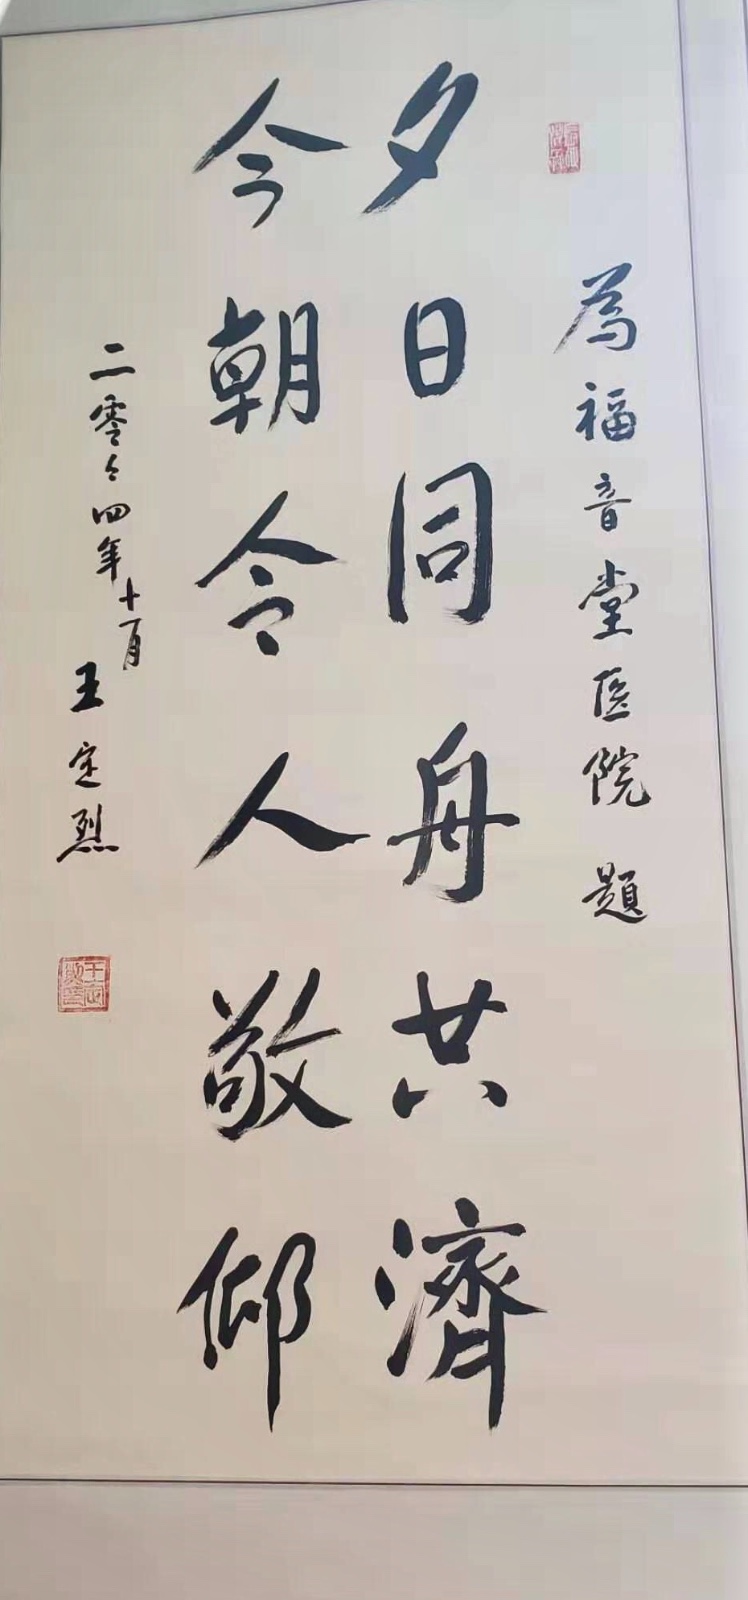 為福音堂医院 題
夕日同舟共濟
今朝令人敬仰
二零零四年十月
王定烈